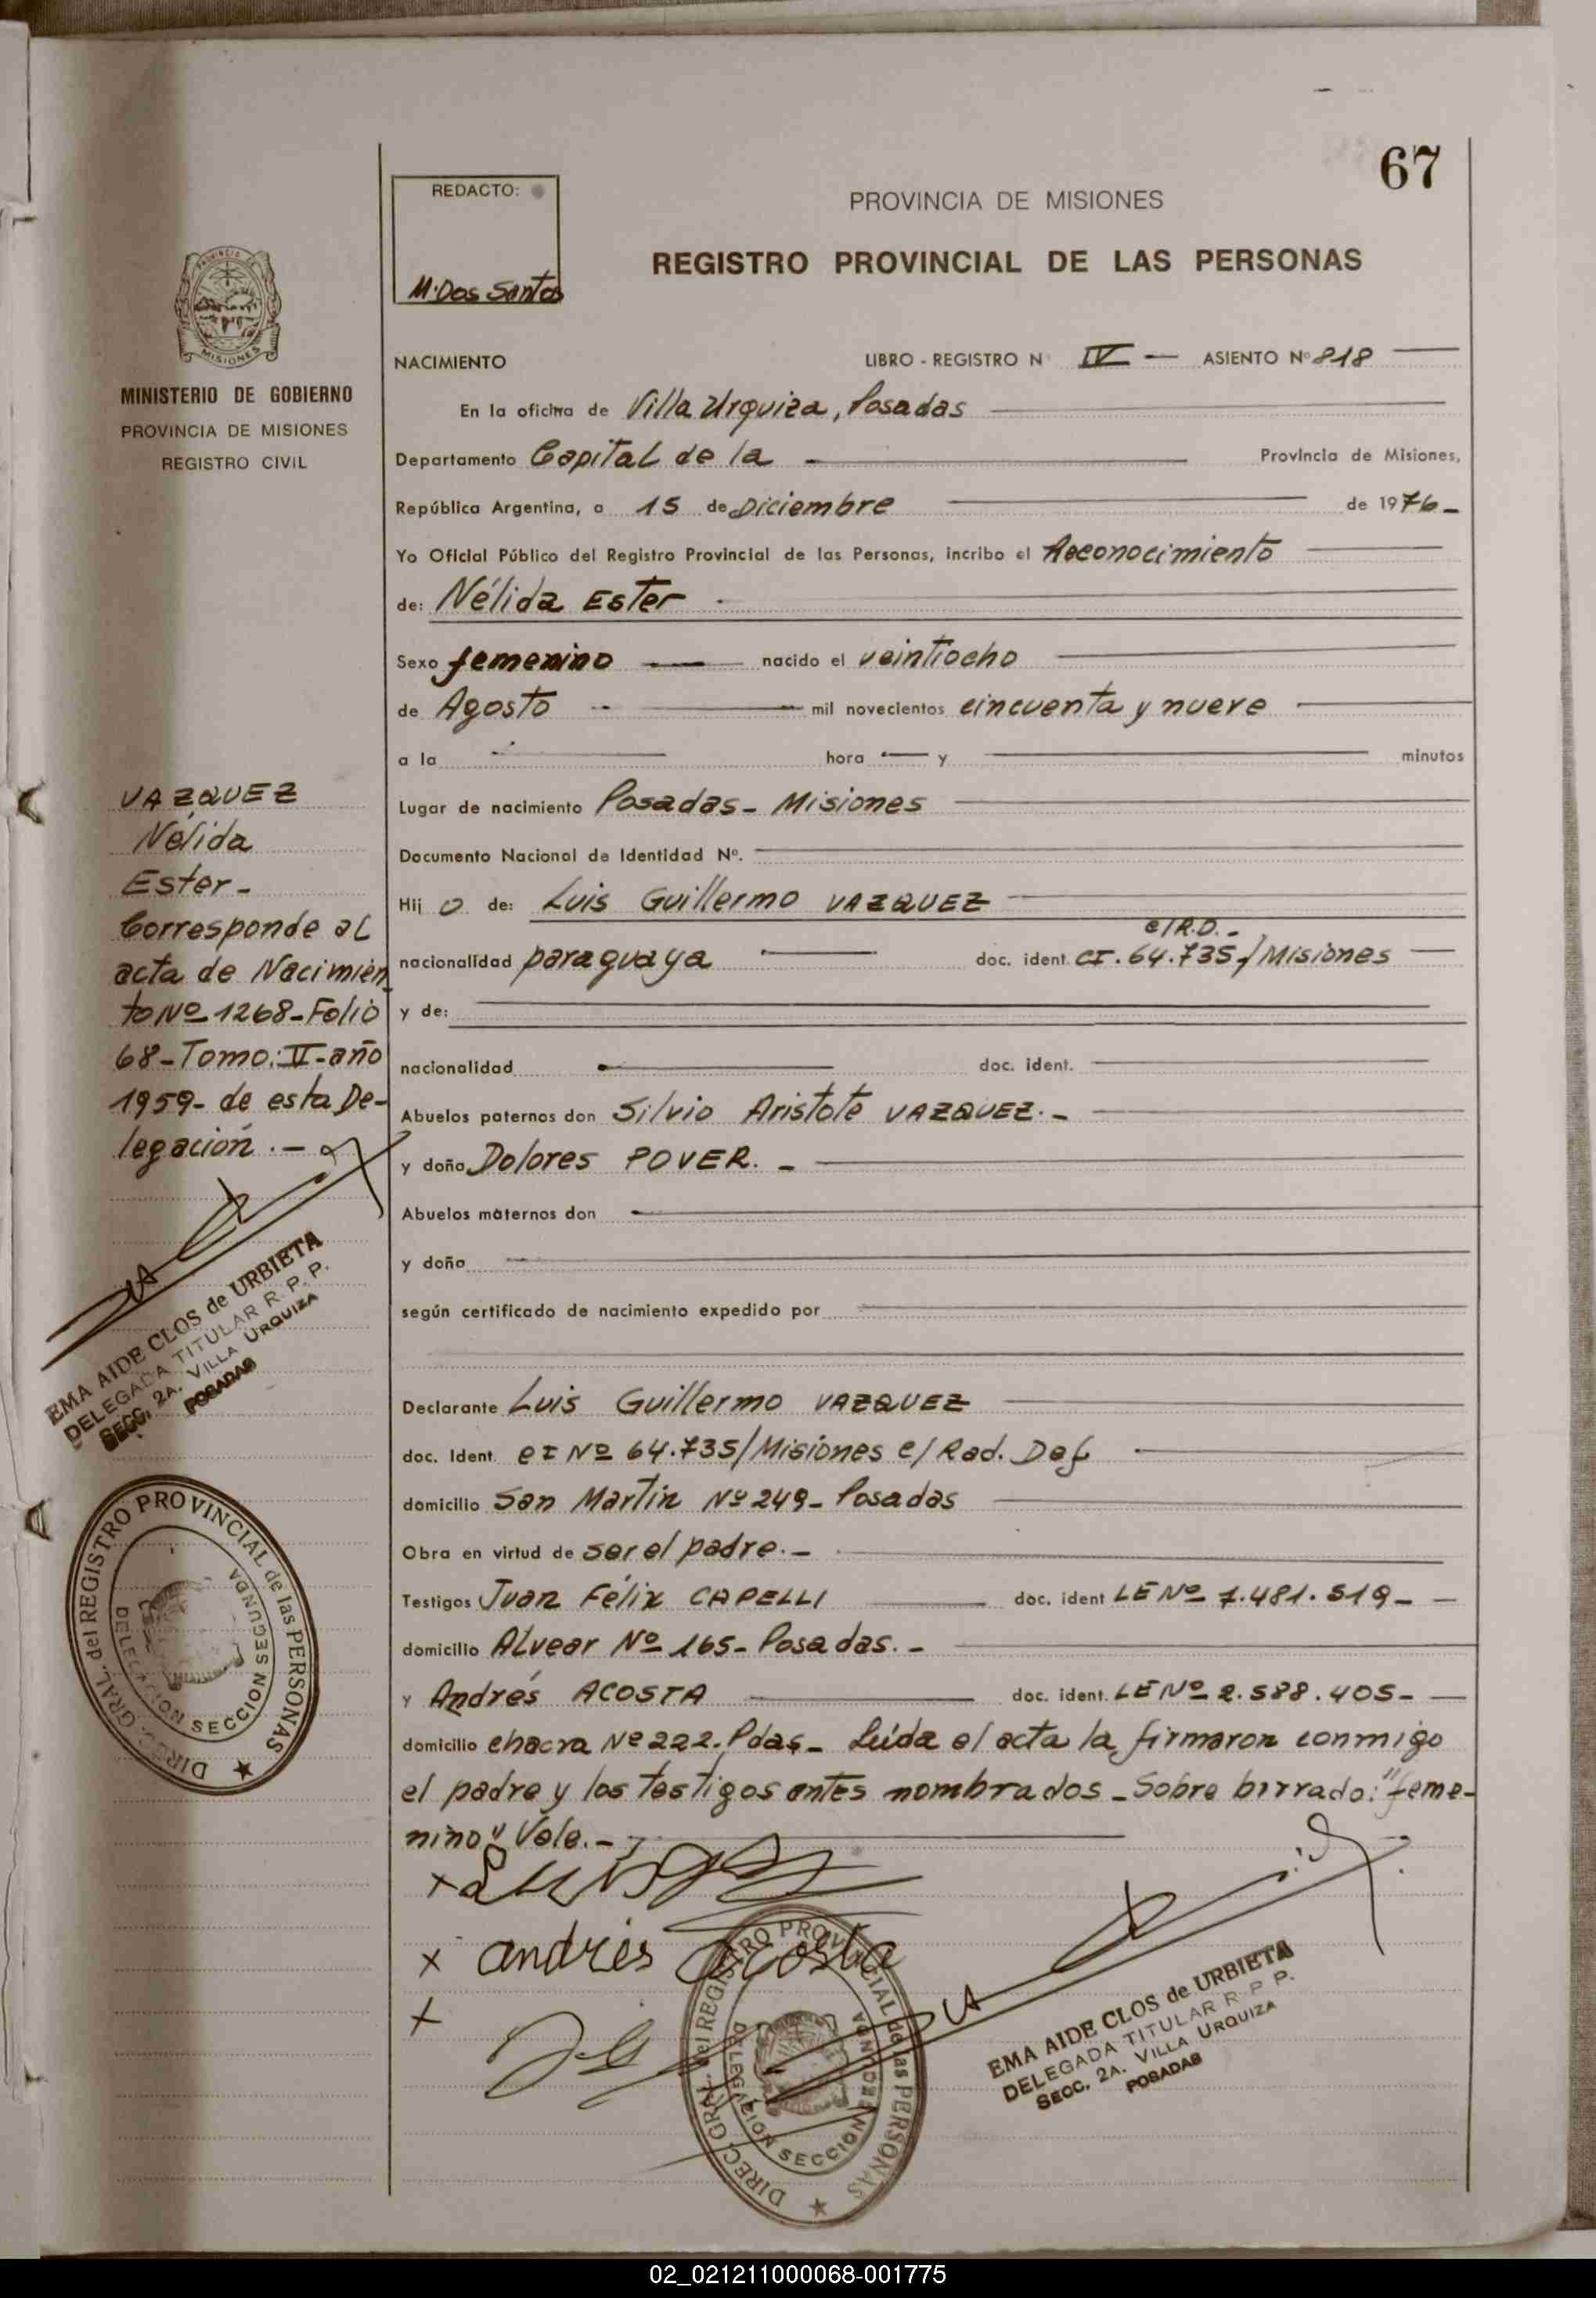 67
REDACTO:
M. Dos Santos
PROVINCIA DE MISIONES
REGISTRO PROVINCIAL DE LAS PERSONAS
PROVINCIA DE
MISIONES
MINISTERIO DE GOBIERNO
PROVINCIA DE MISIONES
REGISTRO CIVIL
NACIMIENTO LIBRO - REGISTRO N IV — ASIENTO Nº 818
En la oficina de Villa Urquiza, Posadas
Departamento Capital de la Provincia de Misiones,
República Argentina, a 15 de Diciembre de 1976-
Yo Oficial Público del Registro Provincial de las Personas, incribo el Reconocimiento
de: Nélida Ester
Sexo femenino nacido el veintiocho
de Agosto mil novecientos cincuenta y nueve
a la hora y minutos
Lugar de nacimiento Posadas- Misiones
Documento Nacional de Identidad Nº.
Hij o de: Luis Guillermo VAZQUEZ
c/R.D.-
nacionalidad paraguaya doc. ident. CI. 64.735-/Misiones
y de:
nacionalidad doc. ident.
Abuelos paternos don Silvio Aristote VAZQUEZ.-
y doña Dolores POVER.-
Abuelos maternos don
y doña
según certificado de nacimiento expedido por
Declarante Luis Guillermo VAZQUEZ
doc. Ident. CI Nº 64.735/Misiones c/ Rad. Def
domicilio San Martin Nº 249- Posadas
Obra en virtud de ser el padre.-
Testigos Juan Félix CAPELLI doc. ident LE Nº 7.481.519-
domicilio Alvear Nº 165- Posadas.-
y Andrés ACOSTA doc. ident. LE Nº 2.588.405-
domicilio chacra Nº 222. Pdas- Leída el acta la firmaron conmigo
el padre y los testigos antes nombrados - Sobre borrado: "feme-
nino" Vale.-
x andrés acosta
VAZQUEZ
Nélida
Ester-
Corresponde al
acta de Nacimien
to Nº 1268-Folio
68-Tomo: II-año
1959- de esta De-
legación.-
EMA AIDE CLOS de URBIETA
DELEGADA TITULAR R. P. P.
SECC. 2A. VILLA URQUIZA
POSADAS
DIREC. GRAL. del REGISTRO PROVINCIAL de las PERSONAS
DELEGACION SECCION SEGUNDA
DIREC. GRAL. del REGISTRO PROVINCIAL de las PERSONAS
DELEGACION SECCION SEGUNDA
EMA AIDE CLOS de URBIETA
DELEGADA TITULAR R. P. P.
SECC. 2A. VILLA URQUIZA
POSADAS
02_021211000068-001775